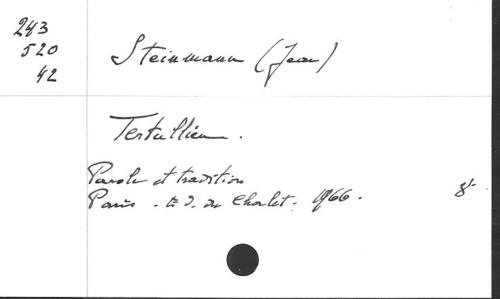 243
520
42
Steinmann (Jean)
Tertullien.
Parole et tradition
Paris. Ed. du Chalet. 1966. 8°